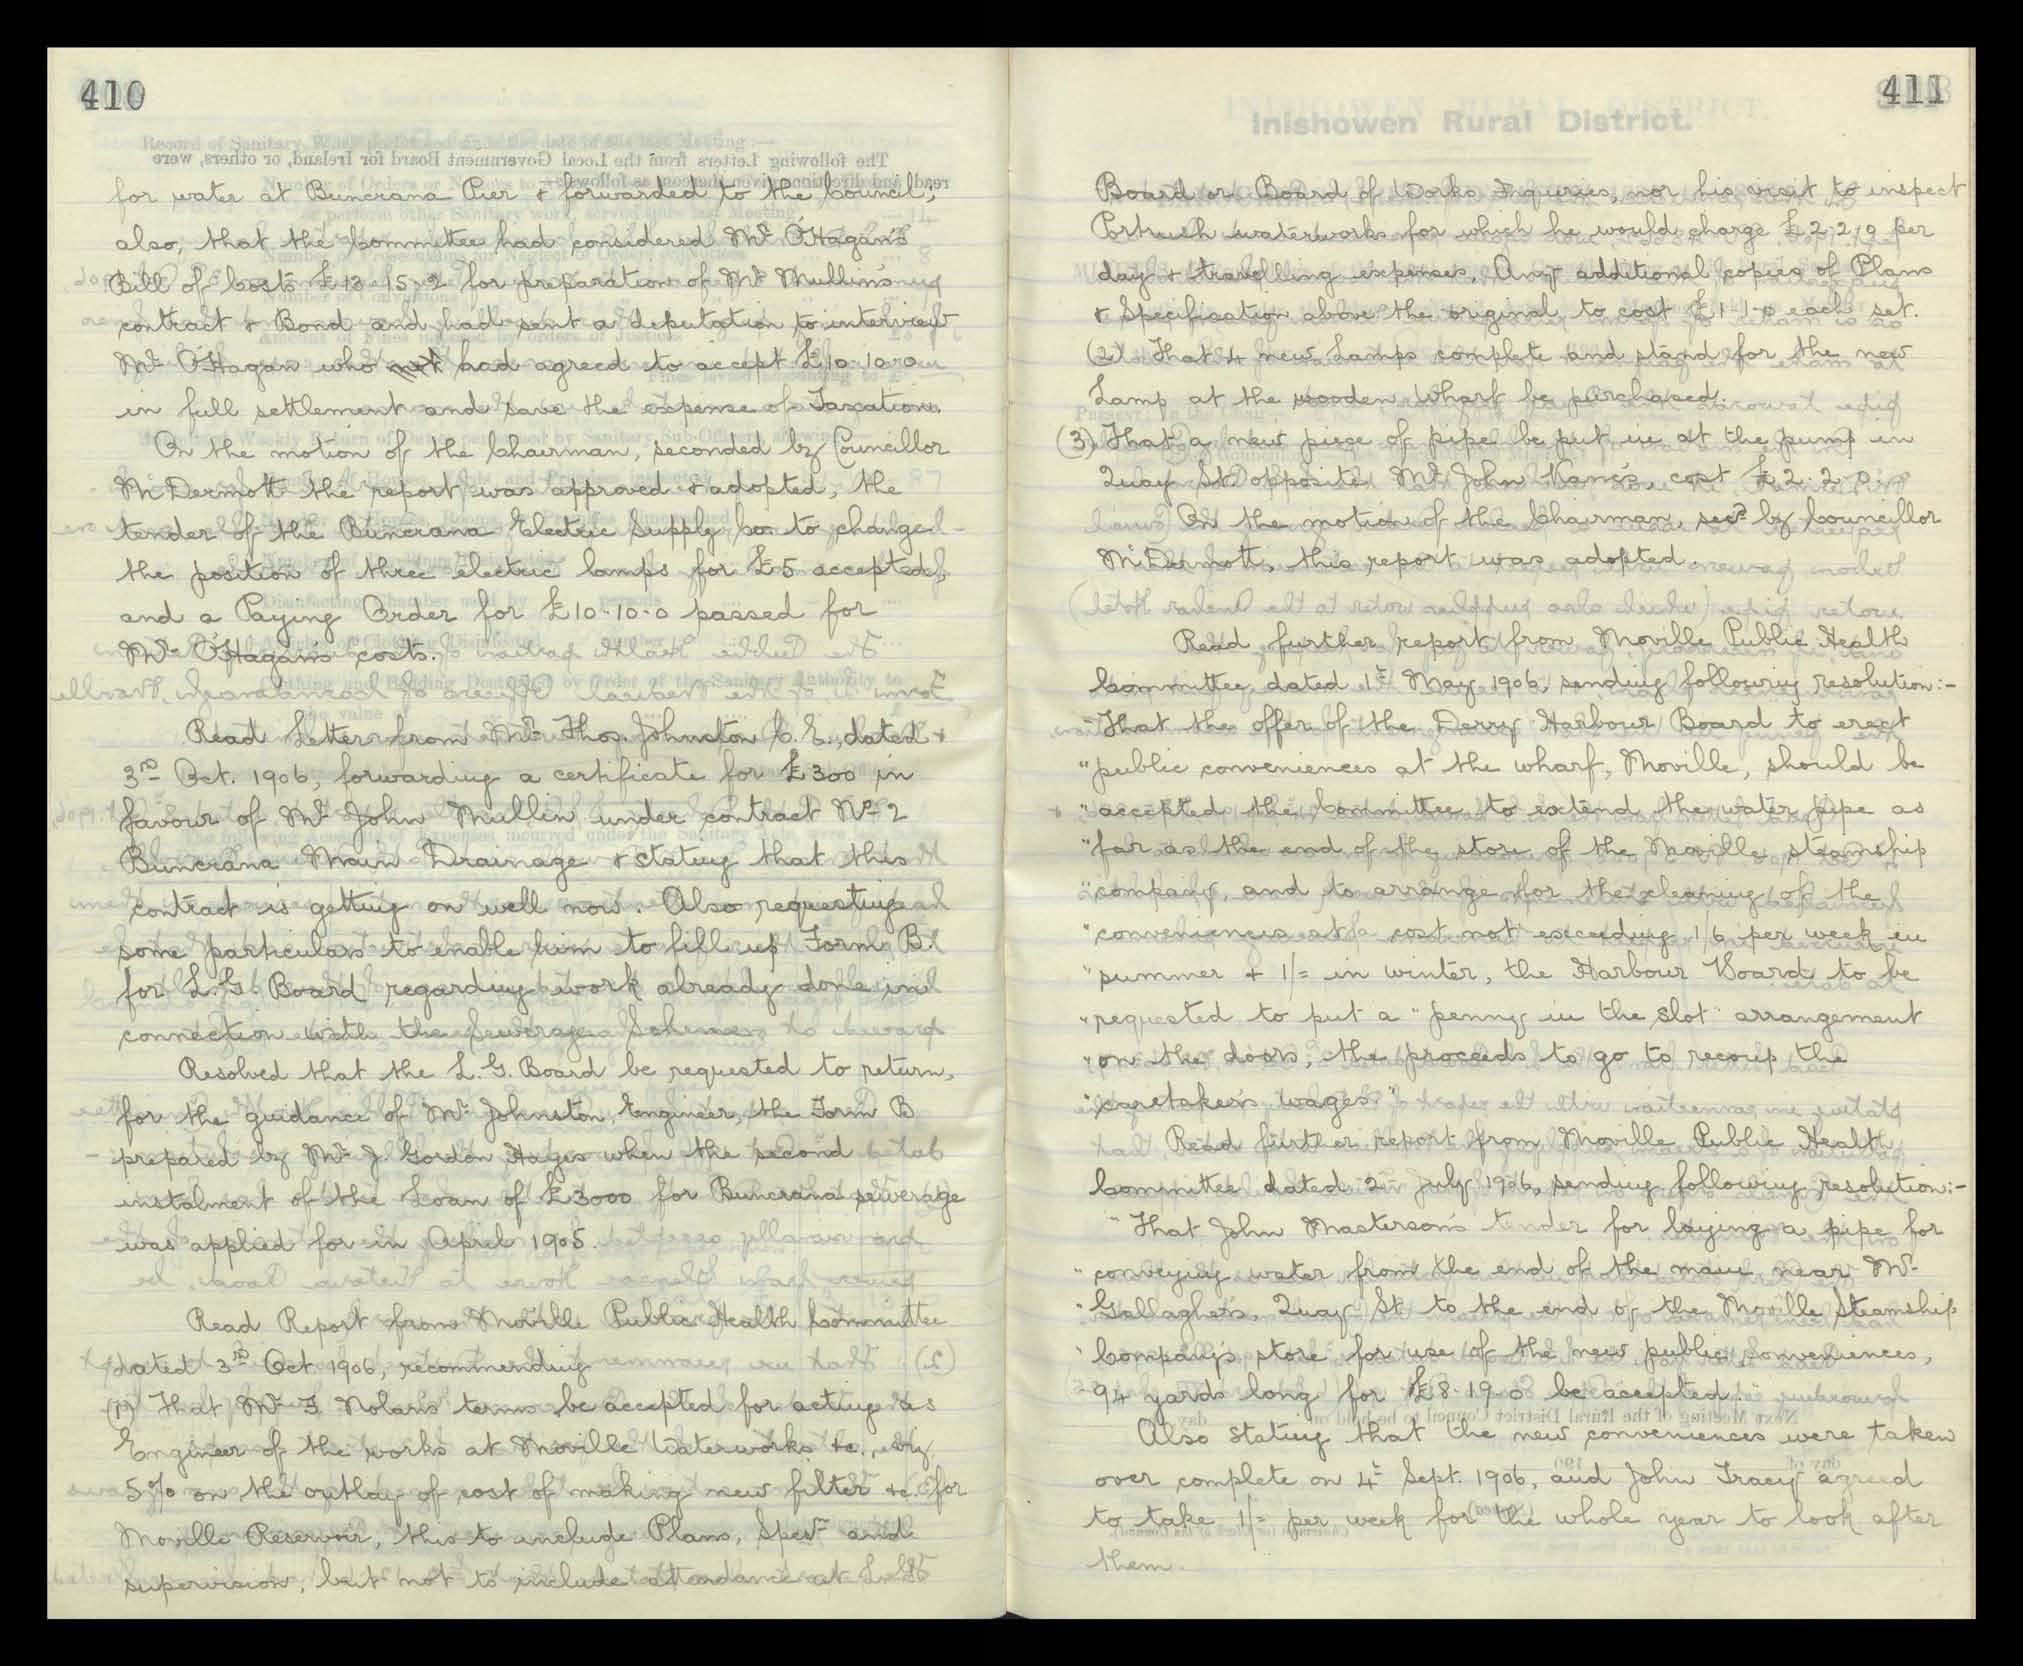 410
for water at Buncrana Pier & forwarded to the Council;
also, that the Committee had considered Mr O'Hagan's
Bill of Costs £13. 15. 2 for preparation of Mr Mullin's
contract & Bond and had sent a deputation to interview
Mr O'Hagan who had agreed to accept £10. 10. 0
in full settlement and save the expense of Taxation.
On the motion of the Chairman, seconded by Councillor
McDermott the report was approved & adopted, the
tender of the Buncrana Electric Supply Co. to change
the position of three electric lamps for £5 accepted,
and a Paying Order for £10. 10. 0 passed for
Mr O'Hagan's costs.
Read Letter from Mr Thos. Johnston C. E., dated
3rd Oct. 1906, forwarding a certificate for £300 in
favour of Mr John Mullin under contract No 2
Buncrana Main Drainage & stating that this
contract is getting on well now. Also requesting
some particulars to enable him to fill up Form B.
for L. G. Board regarding work already done in
connection with the Sewerage Scheme.
Resolved that the L. G. Board be requested to return,
for the guidance of Mr Johnston, Engineer, the Form B
prepared by Mr J. Gordon Hayes when the second
instalment of the Loan of £3000 for Buncrana sewerage
was applied for in April 1905.
Read Report from Moville Public Health Committee
dated 3rd Oct 1906, recommending
(1) That Mr F Nolan's terms be accepted for acting as
Engineer of the works at Moville Waterworks &c., viz
5% on the outlay of cost of making new filter &c. for
Moville Reservoir, this to include Plans, Specn and
supervision, but not to include attendance at L. G.
411
Inishowen Rural District.
Board or Board of Works Inquiries, nor his visit to inspect
Portrush waterworks for which he would charge £2. 2. 0 per
day & travelling expenses, Any additional copies of Plans
& Specification above the original to cost £1. 1. 0 each set.
(2) That 4 new Lamps complete and stand for the new
Lamp at the wooden wharf be purchased.
(3) That a new piece of pipe be put in at the pump in
Quay St. opposite Mr John Kane's, cost £2. 2. 0.
On the motion of the Chairman, secd by Councillor
McDermott, this report was adopted.
Read further report from Moville Public Health
Committee, dated 1st May 1906, sending following resolution:-
"That the offer of the Derry Harbour Board to erect
"public conveniences at the wharf, Moville, should be
"accepted the Committee to extend the water pipe as
"far as the end of the store of the Moville steamship
"company, and to arrange for the cleaning of the
"conveniences at a cost not exceeding 1/6 per week in
"summer & 1/= in winter, the Harbour Board to be
"requested to put a "penny in the slot" arrangement
"on the doors, the proceeds to go to recoup the
"caretaker's wages."
Read further report from Moville Public Health
Committee dated 2nd July 1906, sending following resolution:-
"That John Masterson's tender for laying a pipe for
"conveying water from the end of the main near Mr
"Gallagher's, Quay St. to the end of the Moville Steamship
"Company's store for use of the new public conveniences,
"94 yards long for £8. 19. 0 be accepted."
Also stating that the new conveniences were taken
over complete on 4th Sept. 1906, and John Tracey agreed
to take 1/= per week for the whole year to look after
them.